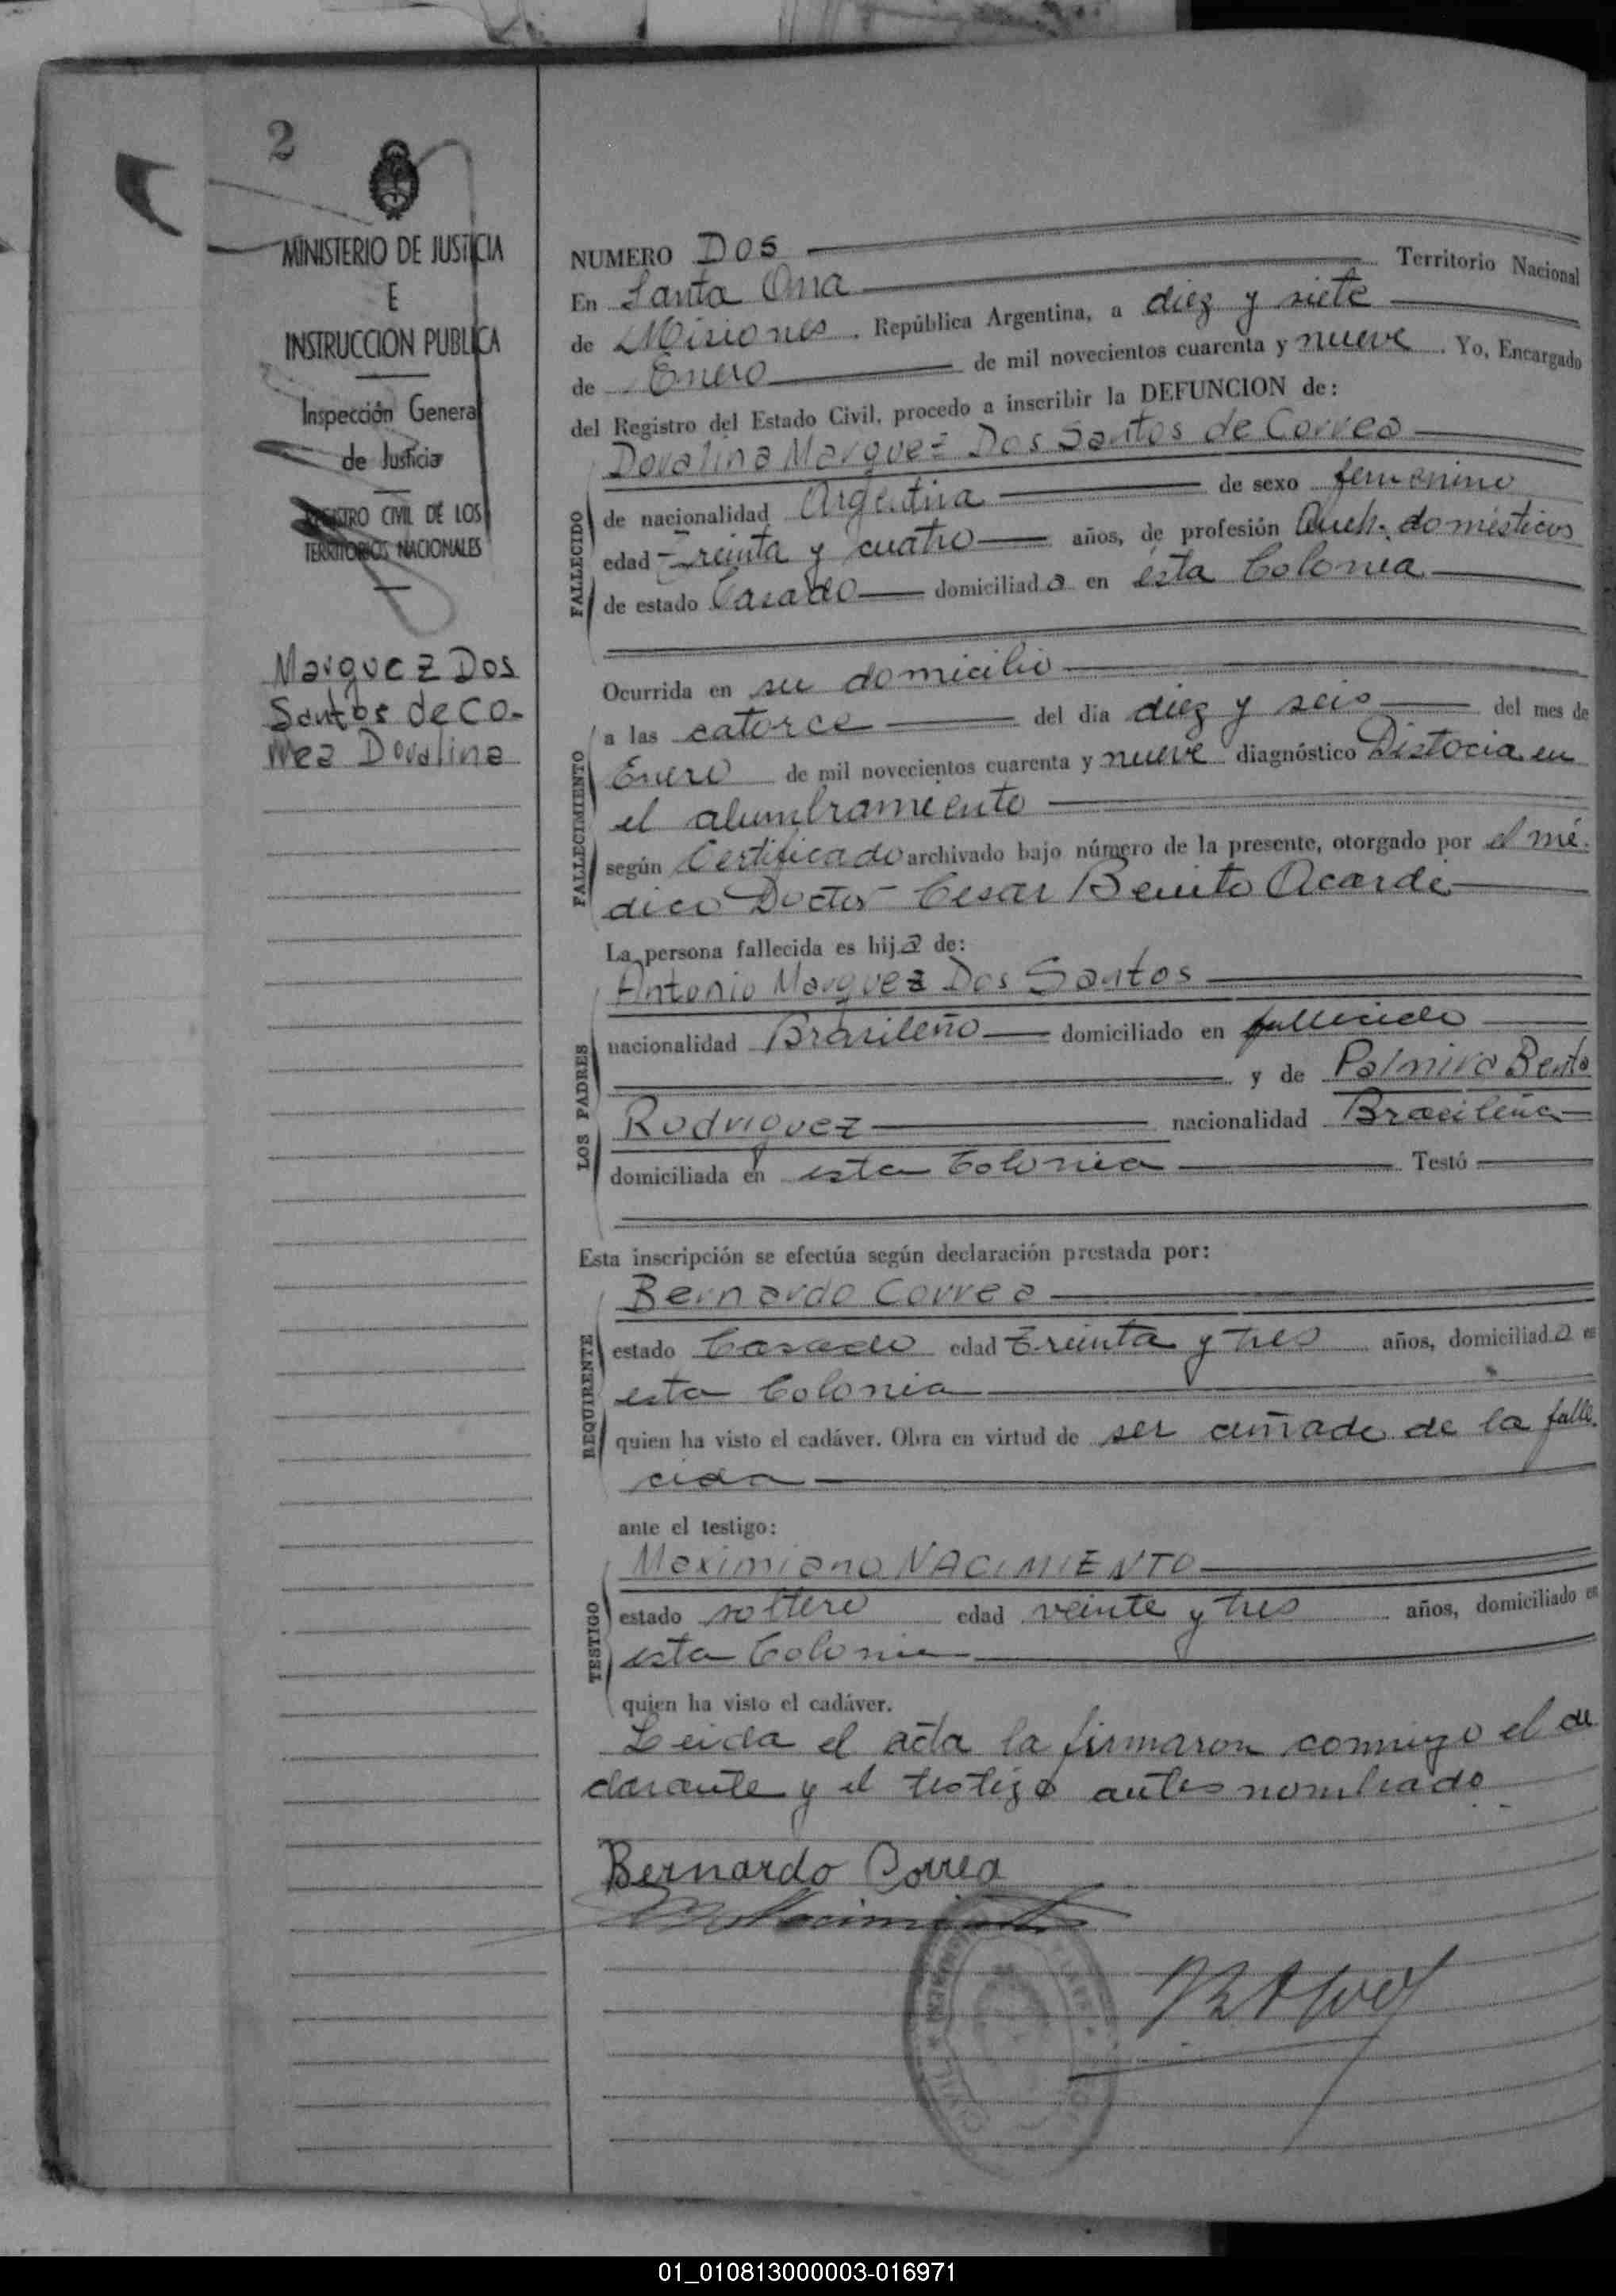 2
MINISTERIO DE JUSTICIA
E
INSTRUCCION PUBLICA
Inspección General
de Justicia
REGISTRO CIVIL DE LOS
TERRITORIOS NACIONALES
Marquez Dos
Santos de Co-
rrea Dovalina
NUMERO Dos
En Santa Ana Territorio Nacional
de Misiones. República Argentina, a diez y siete
de Enero de mil novecientos cuarenta y nueve. Yo, Encargado
del Registro del Estado Civil, procedo a inscribir la DEFUNCION de:
Dovalina Marquez Dos Santos de Correa
FALLECIDO
de nacionalidad Argentina de sexo femenino
edad Treinta y cuatro años, de profesión Queh. domésticos
de estado Casado domiciliada en ésta Colonia
Ocurrida en su domicilio
FALLECIMIENTO
a las catorce del día diez y seis del mes de
Enero de mil novecientos cuarenta y nueve diagnóstico Distocia en
el alumbramiento
según Certificado archivado bajo número de la presente, otorgado por el mé-
dico Doctor Cesar Benito Acardi
La persona fallecida es hija de:
LOS PADRES
Antonio Marquez Dos Santos
nacionalidad Brasileño domiciliado en fallecido
y de Palmira Bento
Rodriguez nacionalidad Brasileña
domiciliada en esta Colonia Testó
Esta inscripción se efectúa según declaración prestada por:
REQUIRENTE
Bernardo Correa
estado Casado edad Treinta y tres años, domiciliado en
esta Colonia
quien ha visto el cadáver. Obra en virtud de ser cuñado de la falle-
cida
ante el testigo:
TESTIGO
Maximiano NACIMIENTO
estado soltero edad veinte y tres años, domiciliado en
esta Colonia
quien ha visto el cadáver.
Leida el acta la firmaron conmigo el de
clarante y el testigo antes nombrado
Bernardo Correa
01_010813000003-016971